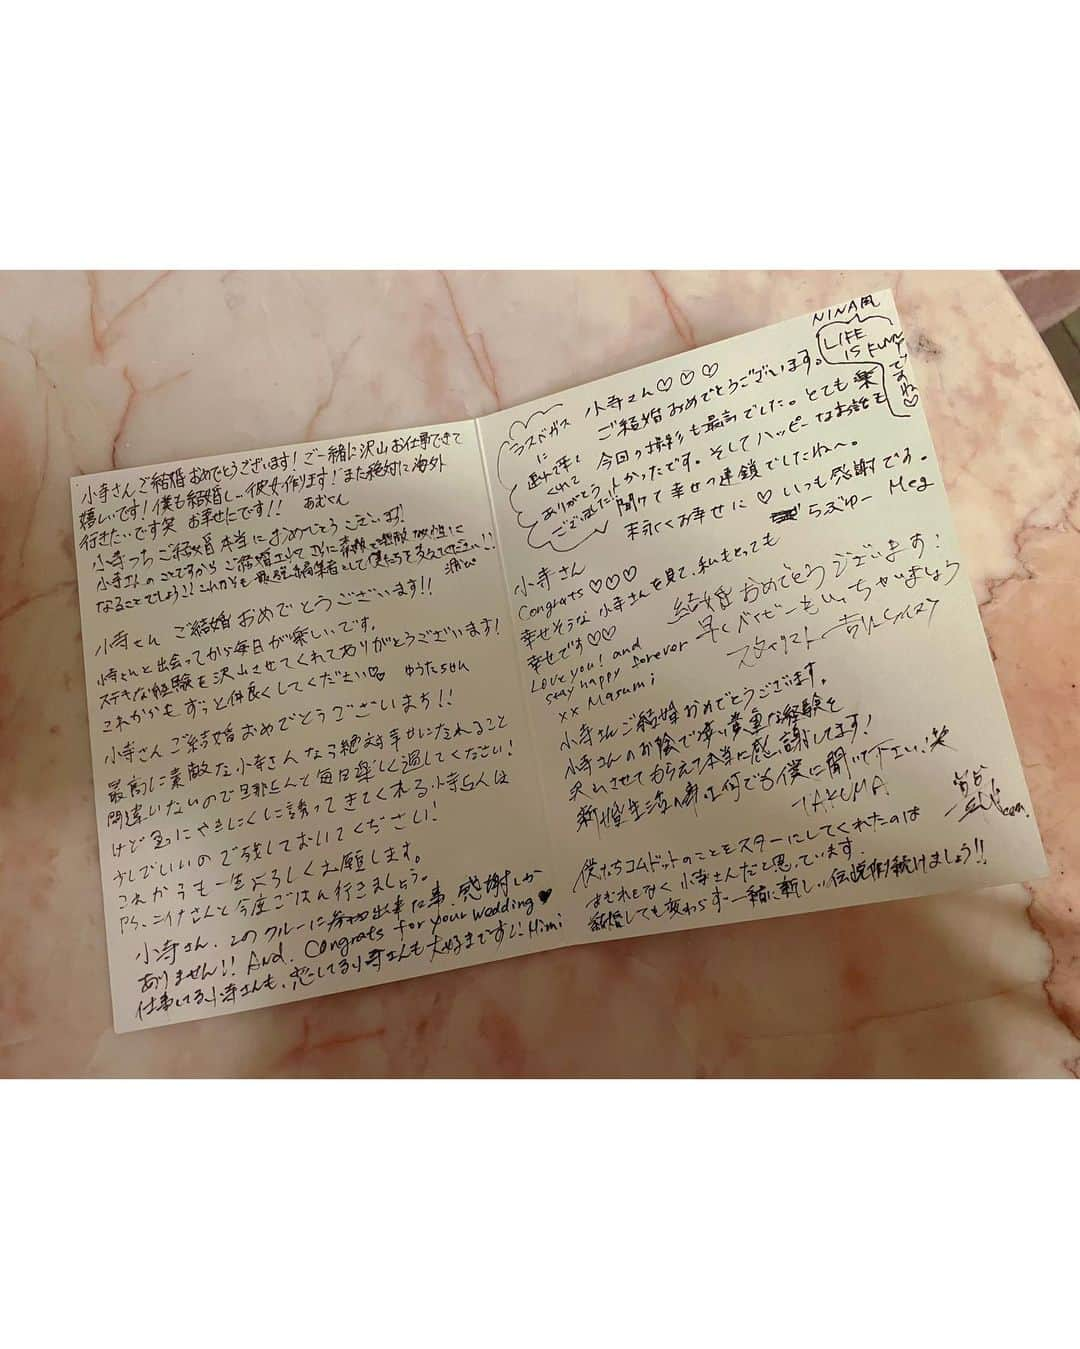 小寺さんご結婚おめでとうございます！ご一緒に沢山お仕事できて
嬉しいです！僕も結婚し、彼女作ります！また絶対に海外
行きたいです笑 お幸せにです！！ あむぎり
小寺っち ご結婚 本当に おめでとうございます！
小寺さんのことですから ご結婚
なることでしょう！！これからも最強の編集者として僕たちを支えてください！！
小寺さん ご結婚おめでとうございます！！
小寺さんと出会ってから毎日が楽しいです。
ステキな経験を沢山させてくれてありがとうございます！
これからもずっと仲良くしてください♡ ゆうたちゃん
小寺さんご結婚おめでとうございます！！
最高に素敵な小寺さんなら絶対幸せになれること
間違いないので旦那さんと毎日楽しく過してください！
けど やきにくに誘ってきてくれる小寺さんは
少しでいいので残しておいてください！
これからも一生よろしくお願します。
PS、ニイナさんと今度ごはん行きましょう。
小寺さん、このクルーに 出来た事、感謝しか
ありません！！ And. Congrats for your wedding♥
仕事してる小寺さんも、恋してる小寺さんも大好きです！！ Himi
NINA風
LIFE
IS FUNNY
ですね♡
ラスベガス
に
選んで
くれて
ありがとう
ございました!!
小寺さん♡♡♡
ご結婚おめでとうございます。
今回の撮影も最高でした。とても楽
しかったです。そしてハッピーなお話も
聞けて幸せの連鎖でしたねへ。
末永くお幸せに♡ いつも感謝です。
らぶゆー Meg
小寺さん
Congrats♡♡♡
幸せそうな小寺さんを見て、私もとっても
幸せです♡♡
Love you! and
stay happy forever
xx Masumi
結婚おめでとうございます！
早くベイビーもいっちゃいましょう
スタイリスト
小寺さんご結婚おめでとうございます。
小寺さんのお陰で凄い貴重な経験を
沢山させてもらえて本当に感謝してます！
新婚生活の事は何でも僕に聞いて下さい！笑
TAKUMA
僕たちコムドットのことをスターにしてくれたのは
まぎれもなく小寺さんだと思っています.
結婚しても変わらず一緒に新しい伝説作り続けましょう!!